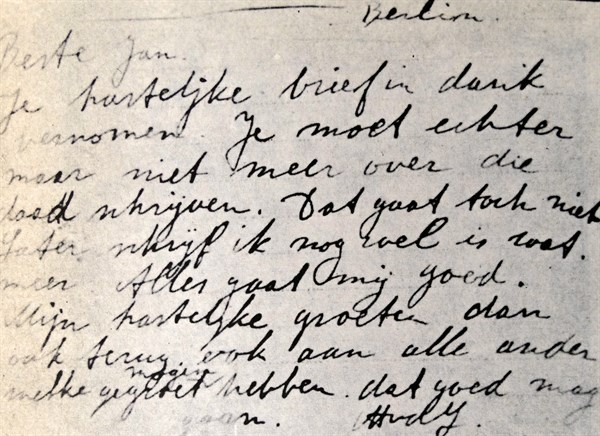 Berlin.
Beste Jan.
Je hartelijke brief in dank
vernomen. Je moet echter
maar niet meer over die
daad schrijven. Dat gaat toch niet
Later schrijf ik nog wel is wat.
meer Alles gaat mij goed.
Mijn hartelijke groeten dan
ook terug. ook aan alle ander
welke gegroet mogen hebben. dat goed mag
gaan.